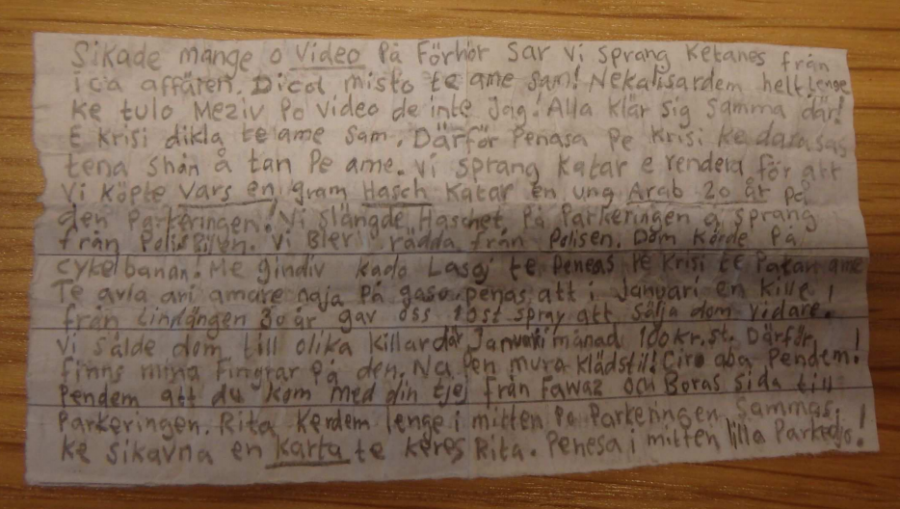 Sikade mange o Video på Förhör sar vi sprang ketanes från
ica affären. Dicol misto te ame sam! Nekalisardem helt lenge
ke tulo Meziv po video de inte jag! Alla klär sig samma där!
E krisi dikla te ame sam. Därför Penasa pe krisi ke darasas
tena shan å tan pe ame. vi sprang katar e rendela för att
vi köpte vars en gram Hasch katar en ung Arab 20 år på
den Parkeringen! Vi slängde Haschet på Parkeringen å sprang
från Polisbilen. Vi Blev rädda från Polisen. Dom körde på
cykelbanan! Me gindiv kado Lasaj te peneas pe krisi te Patan ame
Te avla ari amare naja på gaso penas att i Januari en kille
från Lindängen 30 år gav oss 10st spray att sälja dom vidare.
Vi sålde dom till olika killar där Januari månad 100kr.st. Därför
finns mina Fingrar på den. Na pen mura klädstil! Ciro aba Pendem!
Pendem att du kom med din tjej från Fawaz och Boras sida till
Parkeringen. Rita kerdem lenge i mitten po Parkeringen sammas,
ke sikavna en karta te keres Rita. Penesa i mitten lilla Parkejo!